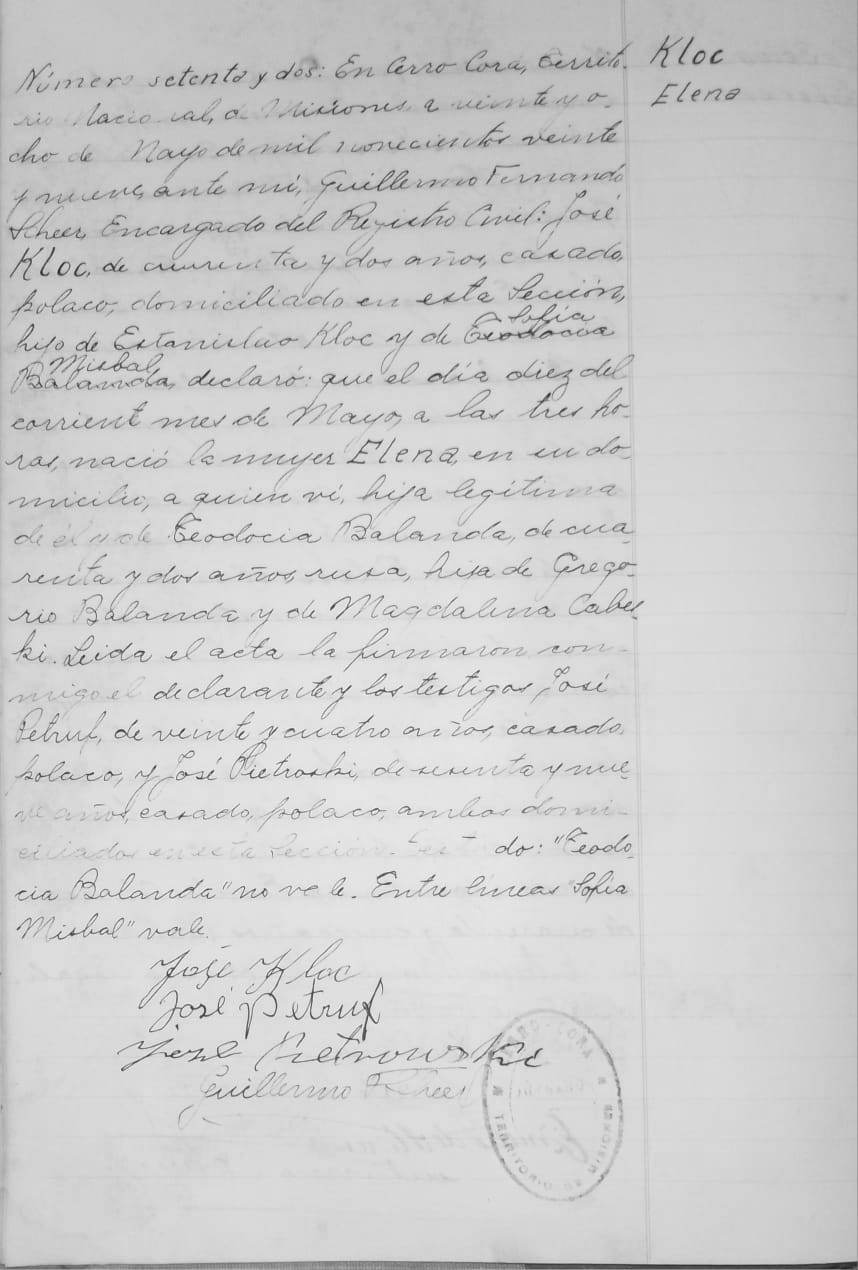 Kloc
Elena
Número setenta y dos: En Cerro Cora, territo-
rio Nacional, de Misiones, a veinte y o-
cho de Mayo de mil novecientos veinte
y nueve, ante mí, Guillermo Fernando
Scheer, Encargado del Registro Civil: José
Kloc, de cuarenta y dos años, casado,
polaco, domiciliado en esta Sección,
Sofia
hijo de Estanislao Kloc y de Teodocia
Misbal
Balanda, declaró: que el día diez del
corriente mes de Mayo, a las tres ho-
ras, nació la mujer Elena, en su do-
micilio, a quien ví, hija legítima
de él y de Teodocia Balanda, de cua-
renta y dos años, rusa, hija de Grego-
rio Balanda y de Magdalena Cabes-
ki. Leida el acta la firmaron con-
migo el declarante y los testigos José
Petruf, de veinte y cuatro años, casado,
polaco, y José Pietroski, de sesenta y nue-
ve años, casado, polaco, ambos domi-
ciliados en esta Sección. Testado: "Teodo-
cia Balanda" no vale. Entre líneas "Sofia
Misbal" vale.
José Kloc
José Petruf
Jose Pietrowski
Guillermo Scheer
CERRO-CORA
TERRITORIO DE MISIONES